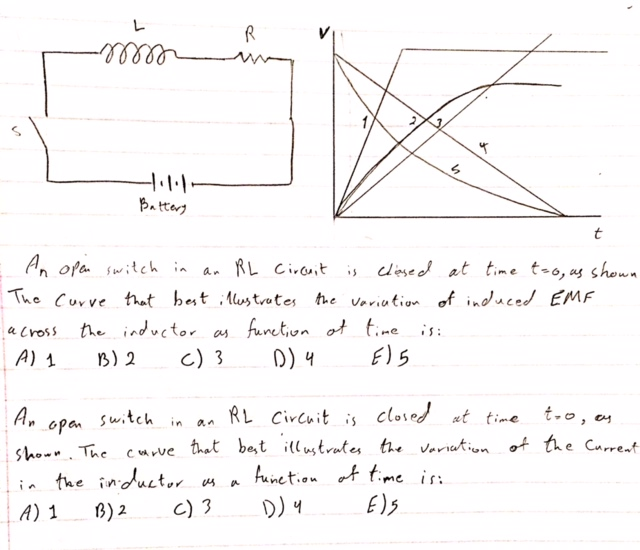 L
R
V
S
Battery
1
2
3
4
5
t
An open switch in an RL Circuit is closed at time t=0, as shown
The Curve that best illustrates the variation of induced EMF
across the inductor as function of time is:
A) 1 B) 2 C) 3 D) 4 E) 5
An open switch in an RL Circuit is closed at time t=0, as
shown. The curve that best illustrates the variation of the Current
in the inductor as a function of time is:
A) 1 B) 2 C) 3 D) 4 E) 5